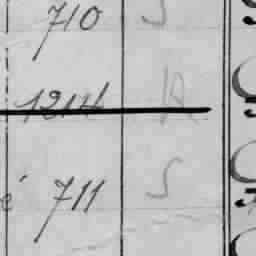 710 S
1214 R
é 711 S